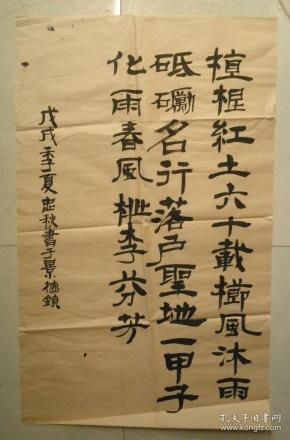 植根紅土六十載櫛風沐雨
砥礪名行落戶聖地一甲子
化雨春風桃李芬芳
戊戌季夏忠秋書于景德鎮
孔夫子旧书网